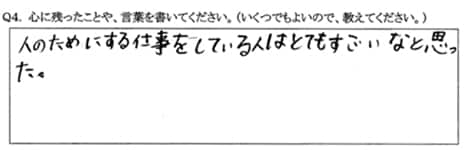 Q4. 心に残ったことや、言葉を書いてください。(いくつでもよいので、教えてください。)
人のためにする仕事をしている人はとてもすごいなと思っ
た。